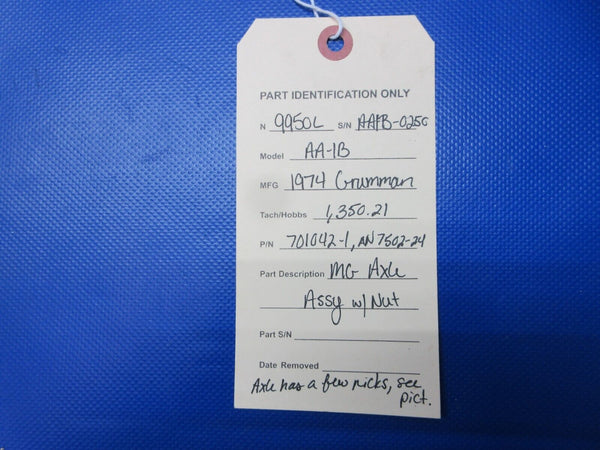 PART IDENTIFICATION ONLY
N 9950L S/N AA1B-0250
Model AA-1B
MFG 1974 Grumman
Tach/Hobbs 1,350.21
P/N 701042-1, AN7502-24
Part Description MG Axle
Assy w/ Nut
Part S/N
Date Removed
Axle has a few nicks, see
pict.